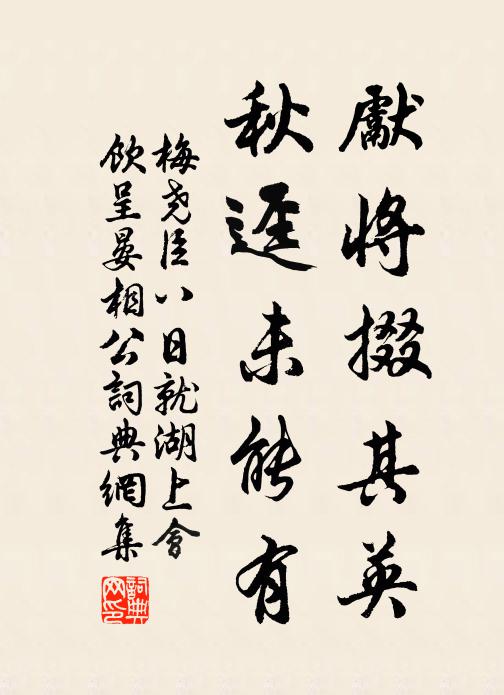 獻將掇其英
秋遲未能有
梅堯臣八日就湖上會
飲呈晏相公詞典網集
詞典
网印